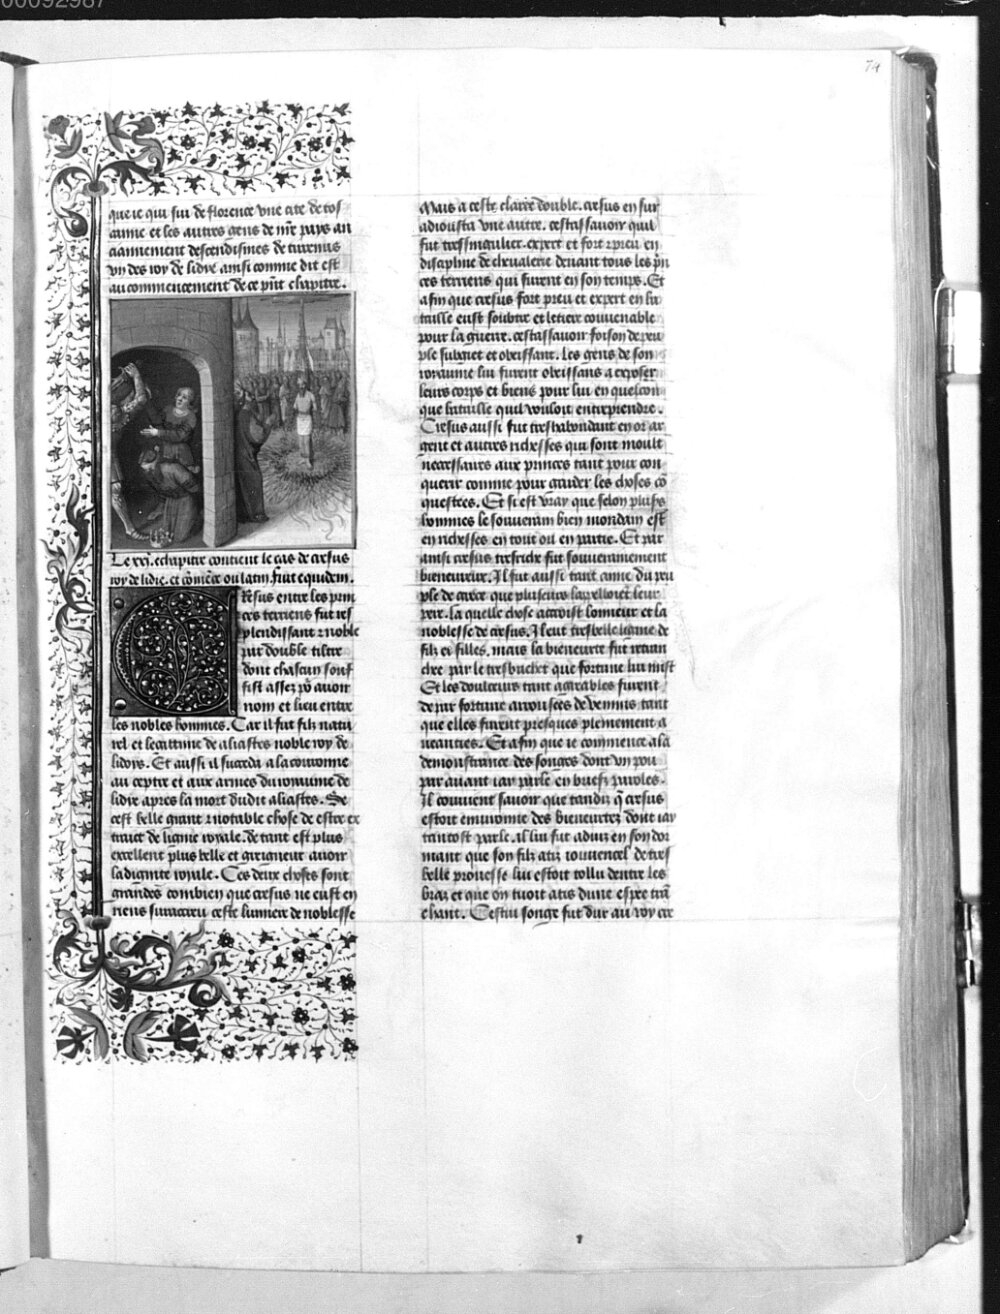 00092987
74
que ie qui sui de florence vne cite de tos
canne et les autres gens de mõ pays an
ciannement descendismes de turenus
vn des roy de lidie ainsi comme dit est
au commencement de ce p̃nt chapitre.
Le xxi.e chapitre contient le cas de cresus
roy de lidie. et cõmẽce ou latin. fuit equidem.
CResus entre les prin
ces terriens fut res
plendissant z noble
par double tiltre
dont chascun souf
fist assez po͛ auoir
nom et lieu entre
les nobles hommes. Car il fut filz natu
rel et legitime de aliastes noble roy de
lidoys. Et aussi il succeda a la couronne
au ceptre et aux armes du royaume de
lidie apres la mort dudit aliastes. Se
cest belle grant z notable chose de estre ex
traict de lignie royale. de tant est plus
excellent plus belle et greigneur auoir
la dignite royale. Ces deux choses sont
grandes combien que cresus ne eust en
riens suracreu ceste lumiere de noblesse
Mais a ceste clarte double. cresus en sur
adiousta vne autre. cestassauoir quil
fut tressingulier. expert et fort z preu en
discipline de cheualerie deuant tous les p̃n
ces terriens qui furent en son temps. Et
afin que cresus fort preu et expert en ba
taille eust soubtie et letiere conuenable
pour la guerre. cestassauoir foison de peu
ple subgiet et obeissant. les gens de son
royaume lui furent obeissans a exposer
leurs corps et biens pour lui en quelcon
que bataille quil vouloit entreprendre.
Cresus aussi fut treshabondant en or ar
gent et autres richesses qui sont moult
necessaires aux princes tant pour con
querir comme pour garder les choses cõ
questees. Et si est vray que selon plus͛s
hommes le souuerain bien mondain est
en richesses en tout ou en partie. Et par
ainsi cresus tresriche fut souuerainement
bieneureux. Il fut aussi tant aime du peu
ple de grece que pluseurs lappelloiet leur
pere. la quelle chose accroist lonneur et la
noblesse de cresus. Il eut tresbelle lignie de
filz et filles. mais la bieneurte fut retran
chee par le tresbuchet que fortune lui mist
Et les doulceurs tant agreables furent
depar fortune arrousees de venins tant
que elles furent presques plainement a
neanties. Et afin que ie commence a la
demonstrance des songes dont vn pou
par auant iay parle en briefz paroles.
Il conuient sauoir que tandiz q̃ cresus
estoit enuironne des bieneurtez dont iay
tantost parle. il lui fut aduiz en son dor
mant que son filz atis iouuencel de tres
belle prouesse lui estoit tollu dentre les
braz et que on tuoit atis dune espee trã
chant. Cestui songe fut dur au roy cre